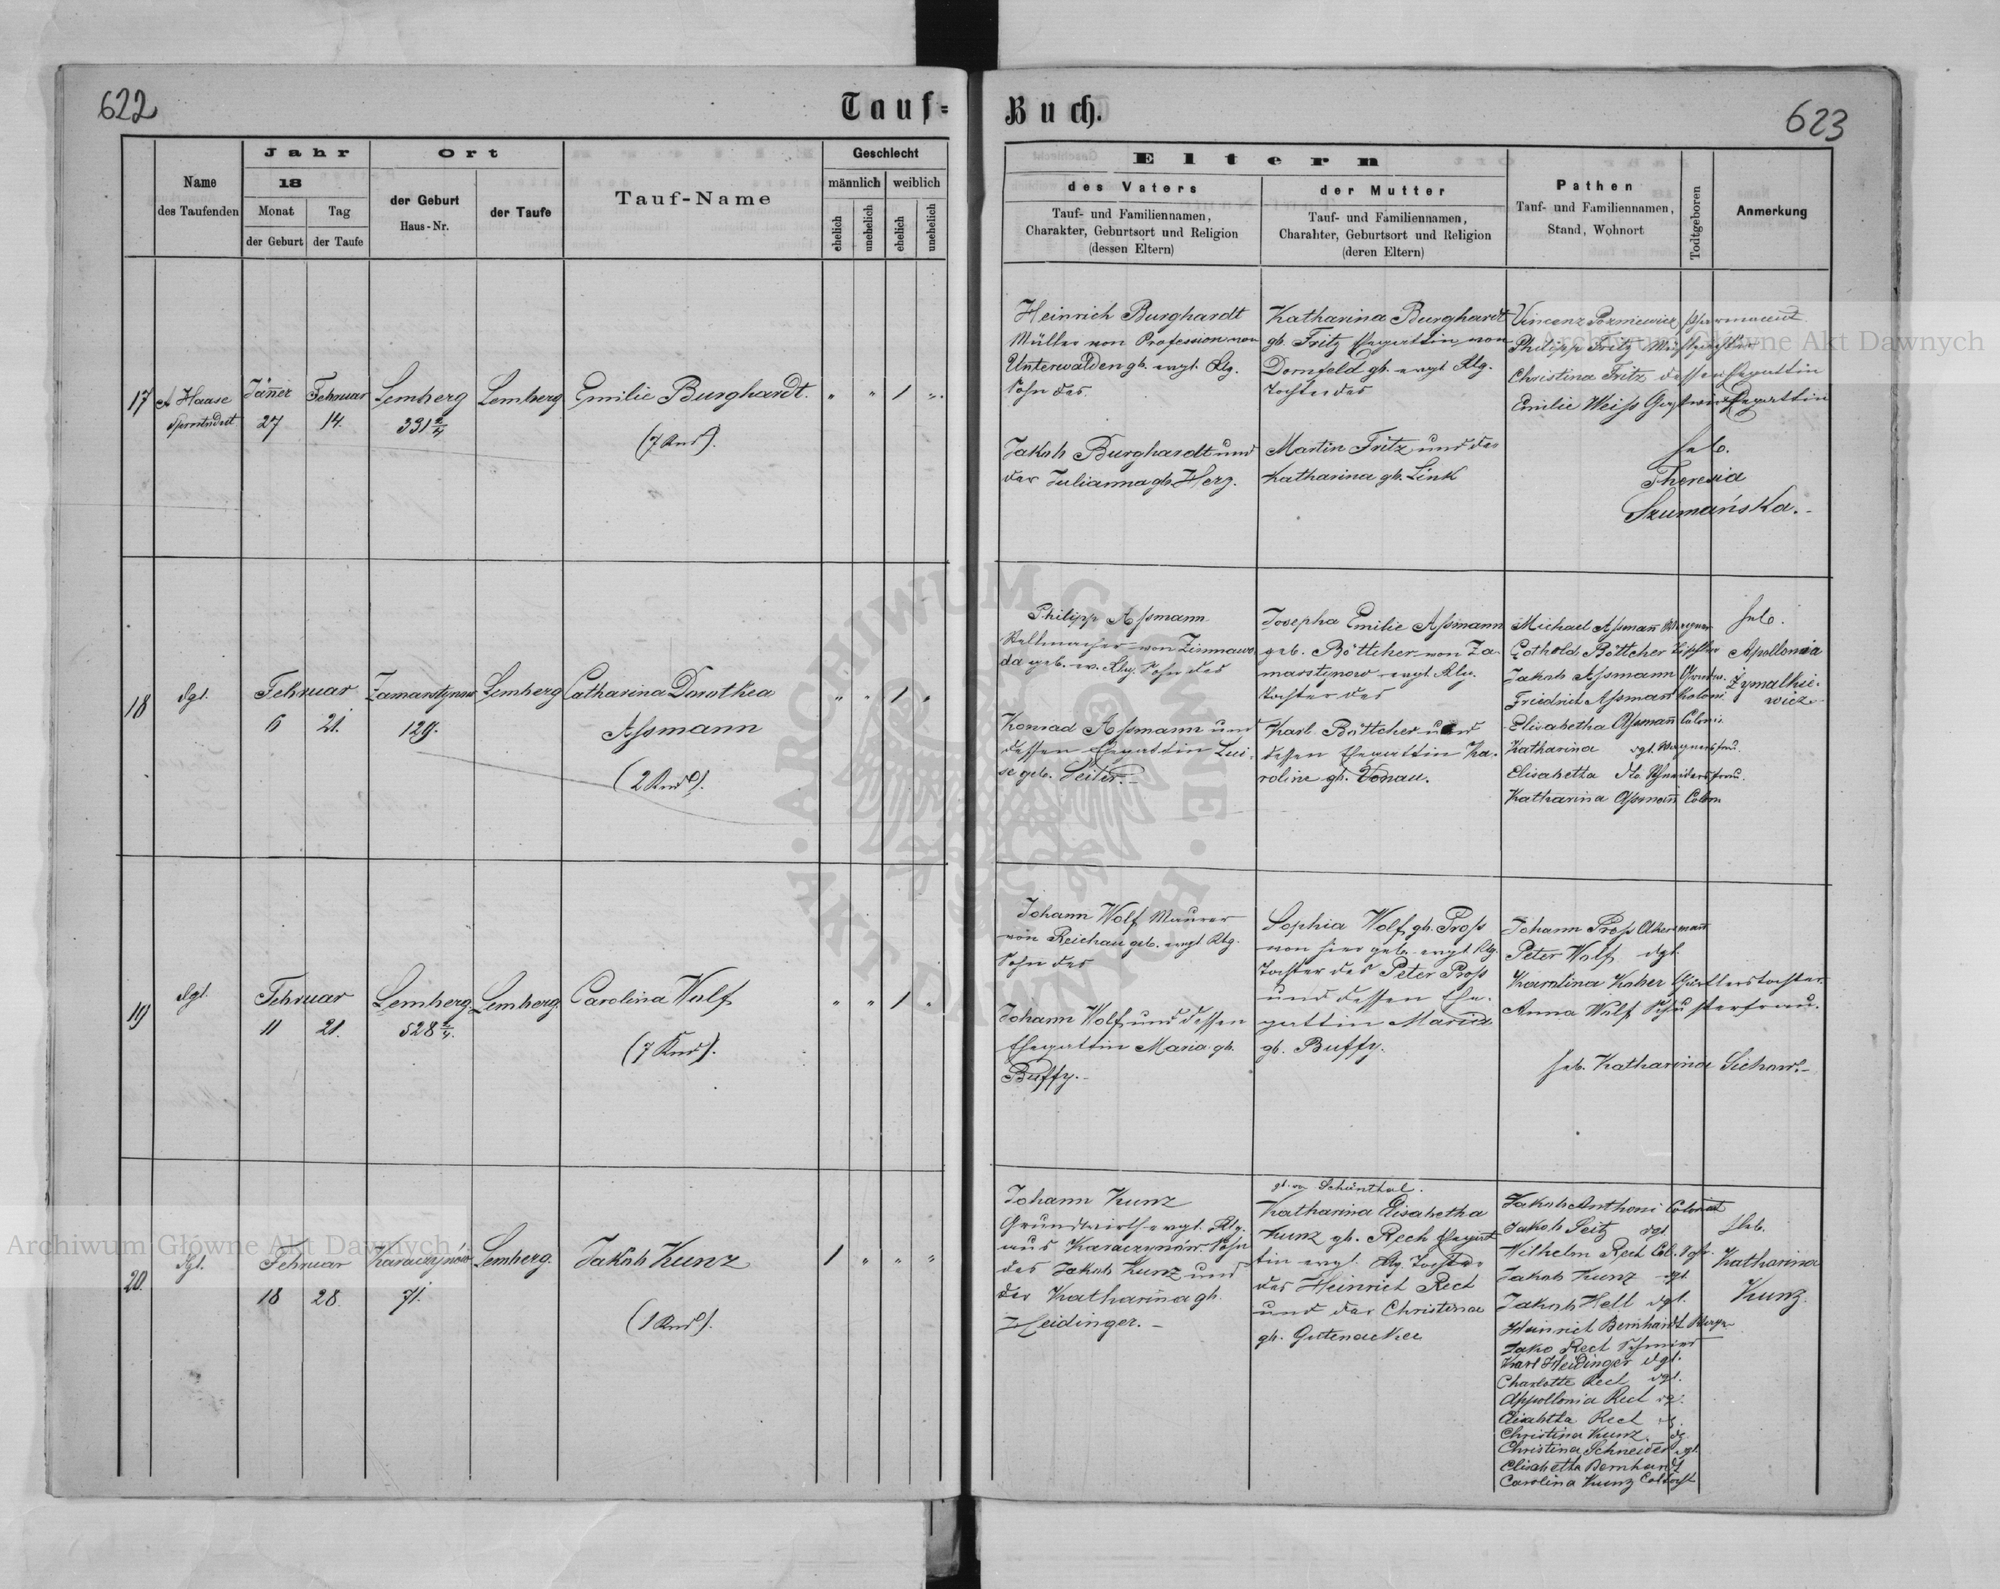 622
Tauf-
Buch.
623
Name
des Taufenden
Jahr
18
Monat
Tag
der Geburt
der Taufe
Ort
der Geburt
Haus-Nr.
der Taufe
Tauf-Name
Geschlecht
männlich
weiblich
ehelich
unehelich
ehelich
unehelich
Eltern
des Vaters
Tauf- und Familiennamen,
Charakter, Geburtsort und Religion
(dessen Eltern)
der Mutter
Tauf- und Familiennamen,
Charakter, Geburtsort und Religion
(deren Eltern)
Pathen
Tauf- und Familiennamen,
Stand, Wohnort
Todtgeboren
Anmerkung
17
A Haase
Jäner
27
Februar
14.
Lemberg
331 2/4
Lemberg
Emilie Burghardt.
(7 Knd).
" " 1 ".
Heinrich Burghardt
Müller von Profession von
Unterwalden gb. evgl. Rlg.
Sohn des
Jakob Burghardt und
der Julianna gb. Herz.
Katharina Burghardt
gb. Fritz Ehegattin von
Dornfeld gb. evgl. Rlg.
Tochter des
Martin Fritz und der
Katharina gb. Link
Vincenz
Philipp Fritz
Christina Fritz dessen Ehegattin
Emilie Weiss Ehegattin
heb.
Theresia
Szumańska.-
18
dgl.
Februar
6
21.
Zamarstynow
129.
Lemberg
Catharina Dorothea
Assmann
(2 Knd).
" " 1 "
Philipp Assmann
von Zimnawo-
da geb. ev. Rlg. Sohn des
Konrad Assmann und
dessen Ehegattin Lui-
se geb. Seiler.-
Josepha Emilie Assmann
geb. Böttcher von Za-
marstinow evgl. Rlg.
Tochter des
Karl Böttcher und
dessen Ehegattin Ka-
roline gb. Donau.
Michael Assmann
Gothold Böttcher
Jakob Assmann
Friedrich Assmann
Elisabetha Assmann Colonis
Katharina dgl. Wagnersfrau.
Elisabetha dto. Schneidersfrau.
Katharina Assmann Colon
heb.
Apollonia
Zymalkie-
wicz
19
dgl.
Februar
11
21.
Lemberg
528 2/4.
Lemberg.
Carolina Wolf
(7 Knd).
" " 1 "
Johann Wolf Maurer
von Reichau geb. evgl. Rlg.
Sohn des
Johann Wolf und dessen
Ehegattin Maria gb.
Buffy.-
Sophia Wolf gb. Pross
von hier geb. evgl. Rlg.
Tochter des Peter Pross
und dessen Ehe-
gattin Maria
gb. Buffy.
Johann Pross Akersmann
Peter Wolf dgl.
Karolina Koher
Anna Wolf Schusterfrau.
heb. Katharina Sichow.-
20.
dgl.
Februar
18
28.
Karaczynów
71.
Lemberg.
Jakob Kunz
(1 Knd).
1 " " "
Johann Kunz
Grundwirth evgl. Rlg.
aus Karaczynów. Sohn
des Jakob Kunz und
der Katharina gb.
Heidinger.-
gb. in Schönthal.
Katharina Elisabetha
Kunz gb. Rech Ehegat-
tin evgl. Rlg. Tochter
des Heinrich Rect
und der Christina
gb. Gutenacker
Jakob Anthoni Colonist
Jakob Seitz dgl.
Wilhelm Rect Col.
Jakob Kunz dgl.
Jakob Hell dgl.
Heinrich Bernhardt
Jako Rect Schmied
Karl Heidinger dgl.
Charlotte Rect dgl.
Appollonia Rect dg.
Elisabetha Rect
Christina Kunz. dg.
Christina Schneider dgl
Elisabetha Bernhardt
Carolina Kunz
Heb.
Katharina
Kunz.
Archiwum Główne Akt Dawnych
Archiwum Główne Akt Dawnych
ARCHIWUM GŁÓWNE AKT DAWNYCH